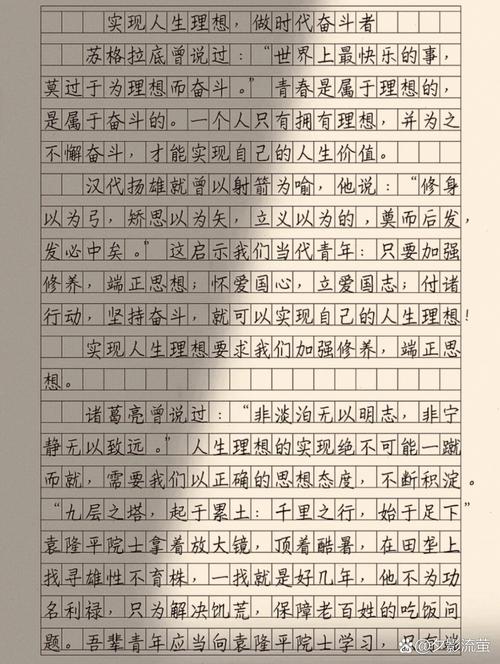 实现人生理想，做时代奋斗者
苏格拉底曾说过：“世界上最快乐的事，
莫过于为理想而奋斗。”青春是属于理想的，
是属于奋斗的。一个人只有拥有理想，并为之
不懈奋斗，才能实现自己的人生价值。
汉代扬雄就曾以射箭为喻，他说：“修身
以为弓，矫思以为矢，立义以为的，奠而后发，
发必中矣。”这启示我们当代青年：只要加强
修养，端正思想；怀爱国心，立爱国志；付诸
行动，坚持奋斗，就可以实现自己的人生理想！
实现人生理想要求我们加强修养，端正思
想。
诸葛亮曾说过：“非淡泊无以明志，非宁
静无以致远。”人生理想的实现绝不可能一蹴
而就，需要我们以正确的思想态度，不断积淀。
“九层之塔，起于累土：千里之行，始于足下”
袁隆平院士拿着放大镜，顶着酷暑，在田垄上
找寻雄性不育株，一找就是好几年，他不为功
名利禄，只为解决饥荒，保障老百姓的吃饭问
题。吾辈青年应当向袁隆平院士学习，只
头条@夕影流萤